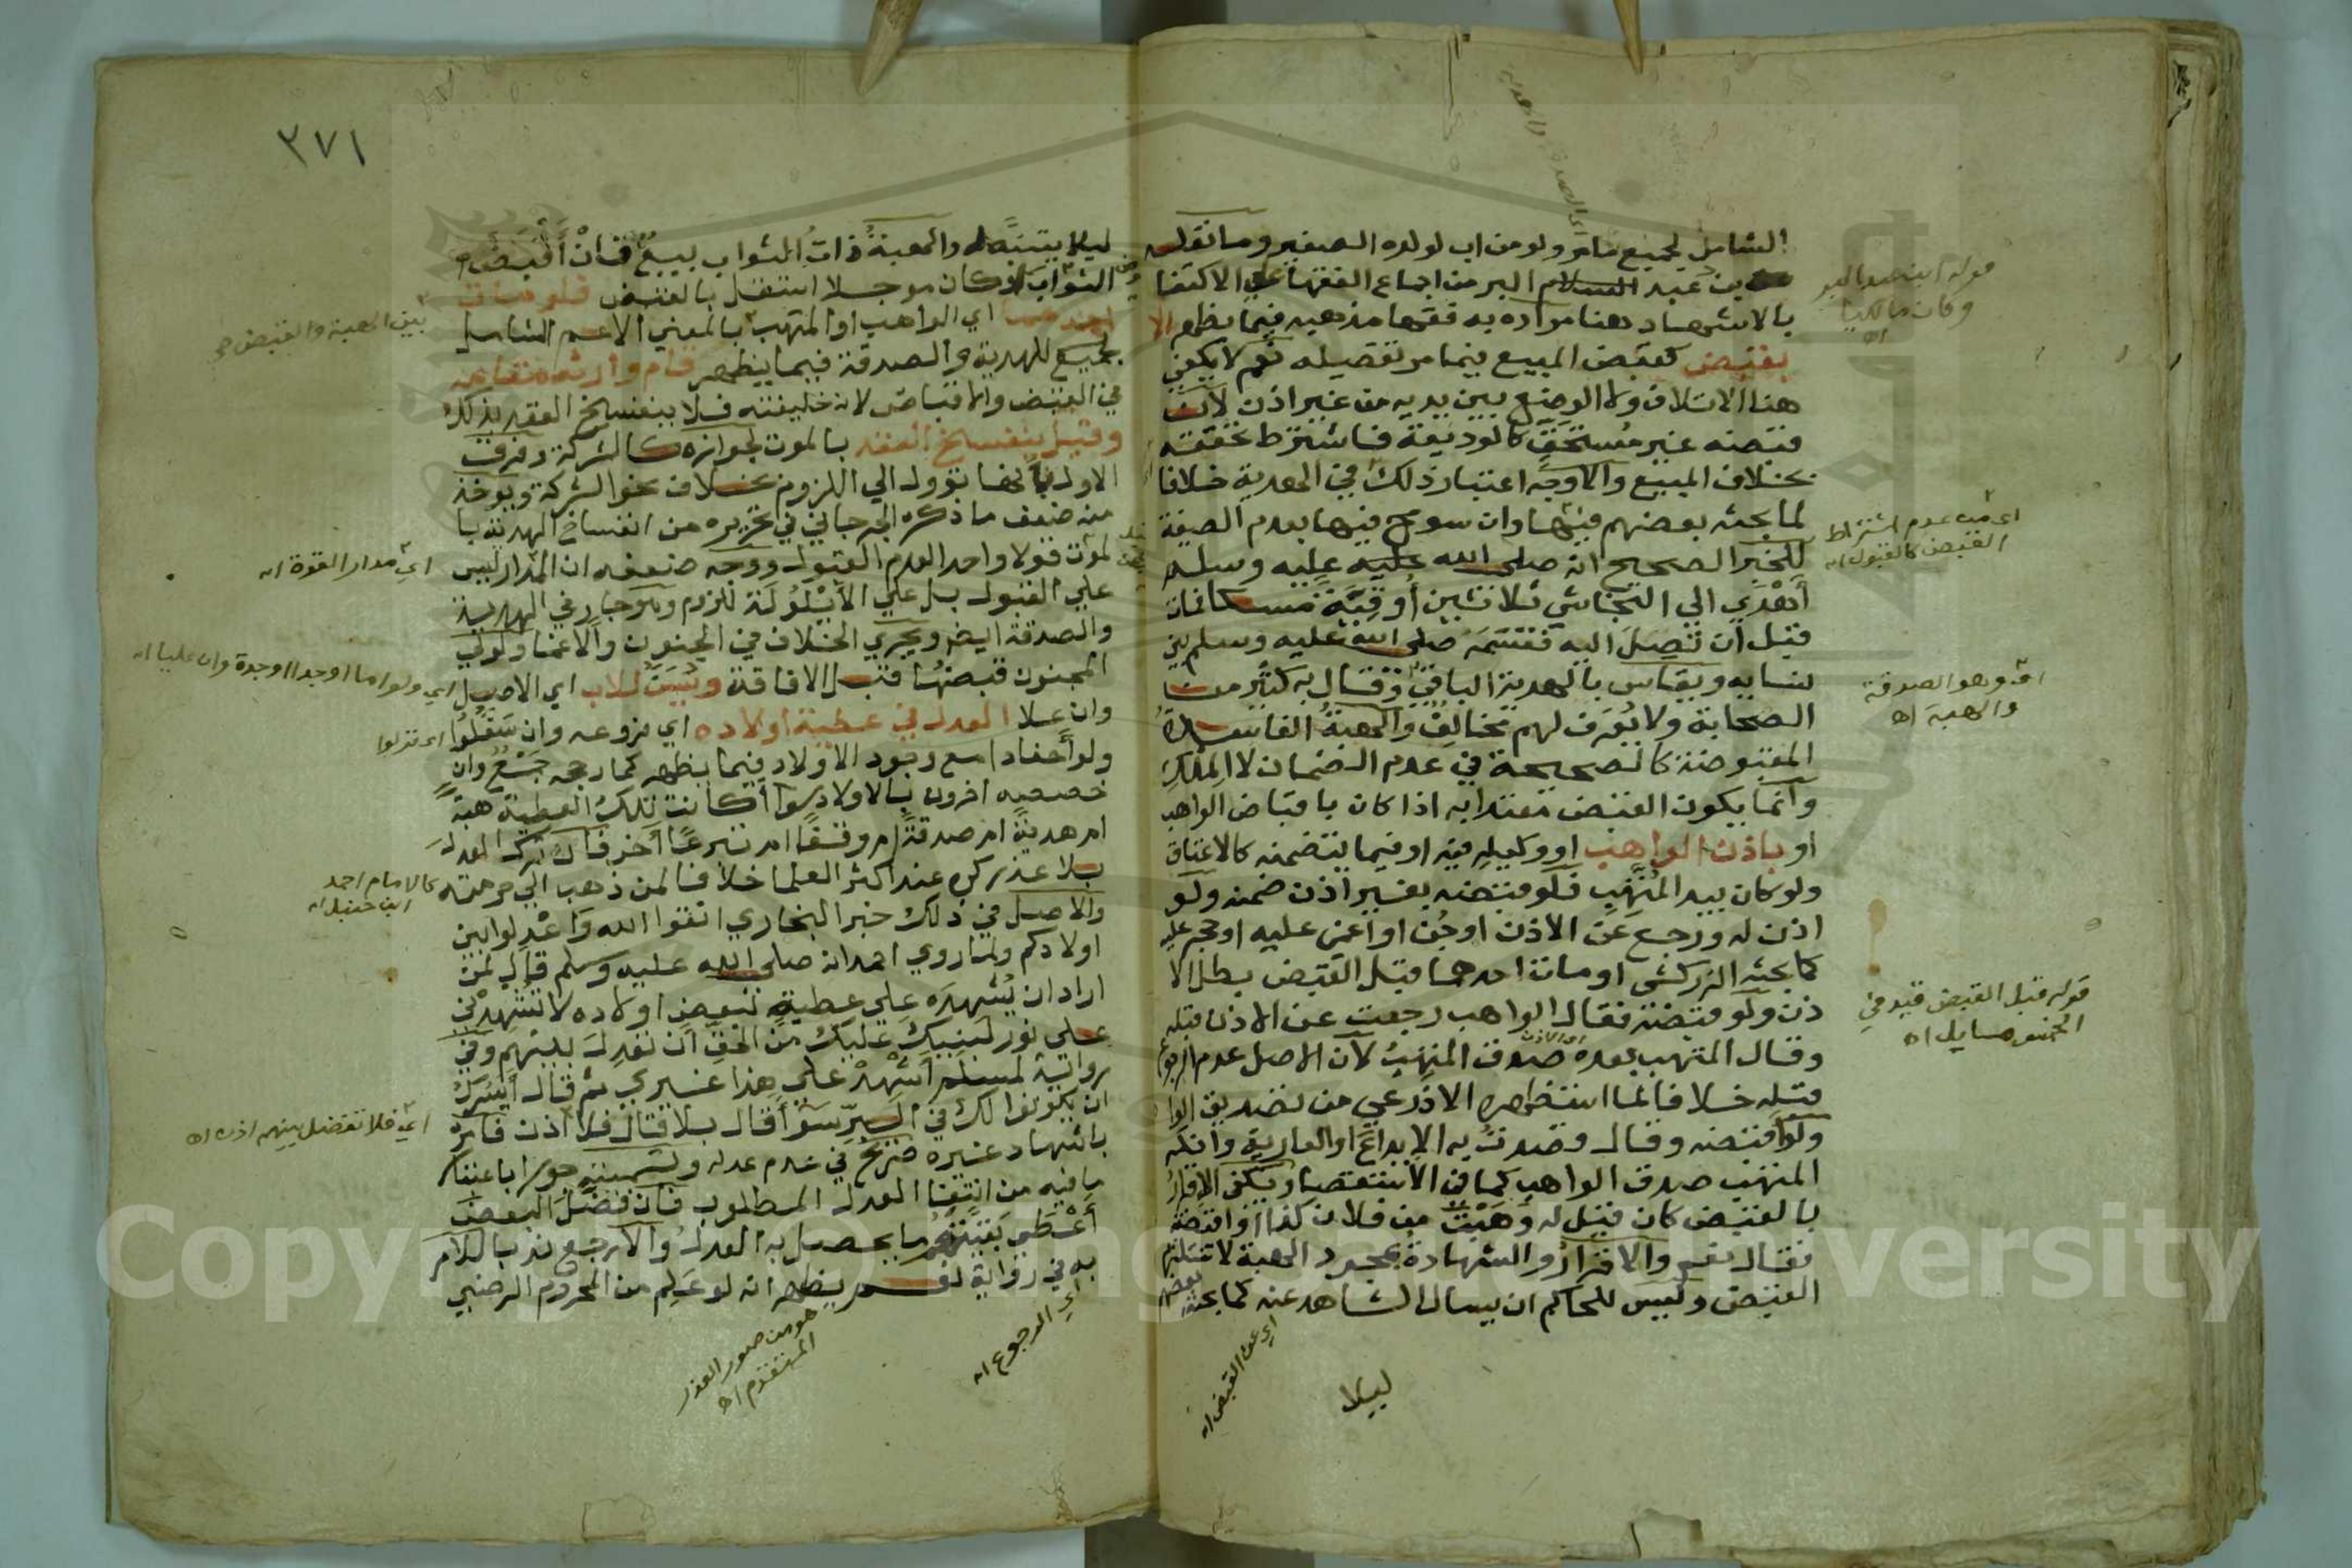 الشامل لجميع مامر ولو من اب لولده الصغير وما نقله
بن عبد البر من اجماع الفقها علي الاكتفا
بالاشهاد هنا مراده به فقها مذهبه فيما يظهر الا
بقبض كقبض المبيع فيما مر تفصيله نعم لا يكفي
هنا الاتلاف ولا الوضع بين يديه من غير اذن لان
قبضه غير مستحق كالوديعة فاشترط تحققه
بخلاف المبيع والاوجه اعتبار ذلك في الهدية خلافا
لما بحثه بعضهم فيها وان سومح فيها بعدم الصيغة
للخبر الصحيح انه صلى الله عليه وسلم
أهدي الي النجاشي ثلاثين أوقية مسكا فمات
قبل أن تصل اليه فقسمه صلى الله عليه وسلم بين
نسايه ويقاس بالهدية الباقي وقال به كثير من
الصحابة ولا يعرف لهم مخالف والهبة الفاسدة
المقبوضة كالصحيحة في عدم الضمان لا الملك
وانما يكون القبض معتدا به اذا كان باقباض الواهب
او باذن الواهب او وكيله فيه او فيما يتضمنه كالاعتاق
ولو كان بيد المتهب فلو قبضه بغير اذن ضمنه ولو
اذن له ورجع عن الاذن او جن او اغمي عليه او حجر عليه
كما بحثه الزركشي او مات احدهما قبل القبض بطل الا
ذن ولو قبضه فقال الواهب رجعت عن الاذن قبله
وقال المتهب بعده صدق المتهب لان الاصل عدم الرجوع
قبله خلافا لما استظهره الاذرعي من تصديق الواهب
ولو اقبضه وقال قصدت به الايداع او العارية وانكر
المتهب صدق الواهب كما في الاستقصا ويكفي الاقرار
بالقبض كان قيل له وهبت من فلان كذا واقبضته
فقال نعم والاقرار والشهادة بمجرد الهبة لا تستلزم
القبض وليس للحاكم ان يسال الشاهد عنه كما بحثه بعضهم
ليلا
قوله ابن عبد البر
وكان مالكيا
اه
اي من عدم اشتراط
القبض كالقبول اه
اي وهو الصدقة
والهبة اه
قوله قبل القبض قيد في
الخمس مسايل اه
اي عن القبض اه
٣٧١
ليلا يتنبه له والهبة ذات الثواب بيع فان أقبضه
الثواب او كان موجلا انتقل بالقبض فلو مات
احدهما اي الواهب او المتهب بالمعني الاعم الشامل
لجميع للهدية والصدقة فيما يظهر قام وارثه مقامه
في القبض والاقباض لانه خليفته فلا ينفسخ العقد بذلك
وقيل ينفسخ العقد بالموت لجوازه كالشركة وفرق
الاول بأنها تؤول الي اللزوم بخلاف نحو الشركة ويؤخذ
منه ضعف ما ذكره الجرجاني في تحريره من انفساخ الهدية با
لموت قولا واحدا لعدم القبول ووجه ضعفه ان المدار ليس
علي القبول بل علي الأيلولة للزوم وهو جار في الهدية
والصدقة ايضا ويجري الخلاف في الجنون والاغما ولولي
المجنون قبضها قبل الافاقة ويسن للاب اي الاصل
وان علا العدل في عطية اولاده اي فروعه وان سفلوا
ولو أحفادا مع وجود الاولاد فيما يظهر كما رجحه جمع وان
خصصه اخرون بالاولاد سوا أكانت تلك العطية هبة
ام هدية ام صدقة ام وقفا ام تبرعا أخر فان ترك العدل
بلا عذر كره عند اكثر العلما خلافا لمن ذهب الي حرمته
والاصل في ذلك خبر البخاري اتقوا الله واعدلوا بين
اولادكم ولما روي احمد انه صلى الله عليه وسلم قال لمن
اراد ان يشهده علي عطية لبعض اولاده لا تشهدني
علي جور لبنيك عليك من الحق أن تعدل بينهم وفي
رواية لمسلم أشهد علي هذا غيري ثم قال أيسرك
ان يكونوا لك في البر سوا قال بلا قال فلا اذن فامره
باشهاد غيره صريح في عدم عدله وتسميته جورا باعتبار
ما فيه من انتفا العدل المطلوب فان فضل البعض
أعطي بقيتهم ما يحصل به العدل والا رجع ندبا للامر
به في رواية نعم يظهر انه لو علم من المحروم الرضي
بين الهبة والقبض
اي مدار القوة اه
اي ولو اما او جدا او جدة وان عليا اه
اي نزلوا
كالامام احمد
ابن حنبل اه
اي فلا تفضل بينهم اذن اه
هو من صور العذر
المتقدم اه
اي الرجوع اه
Copyright © King Saud University